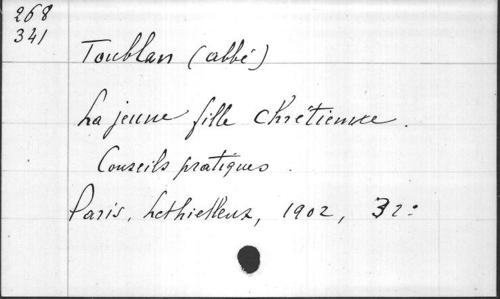 268
341
Toublan (abbé)
La jeune fille chrétienne.
Conseils pratiques.
Paris, Lethielleux, 1902, 32°